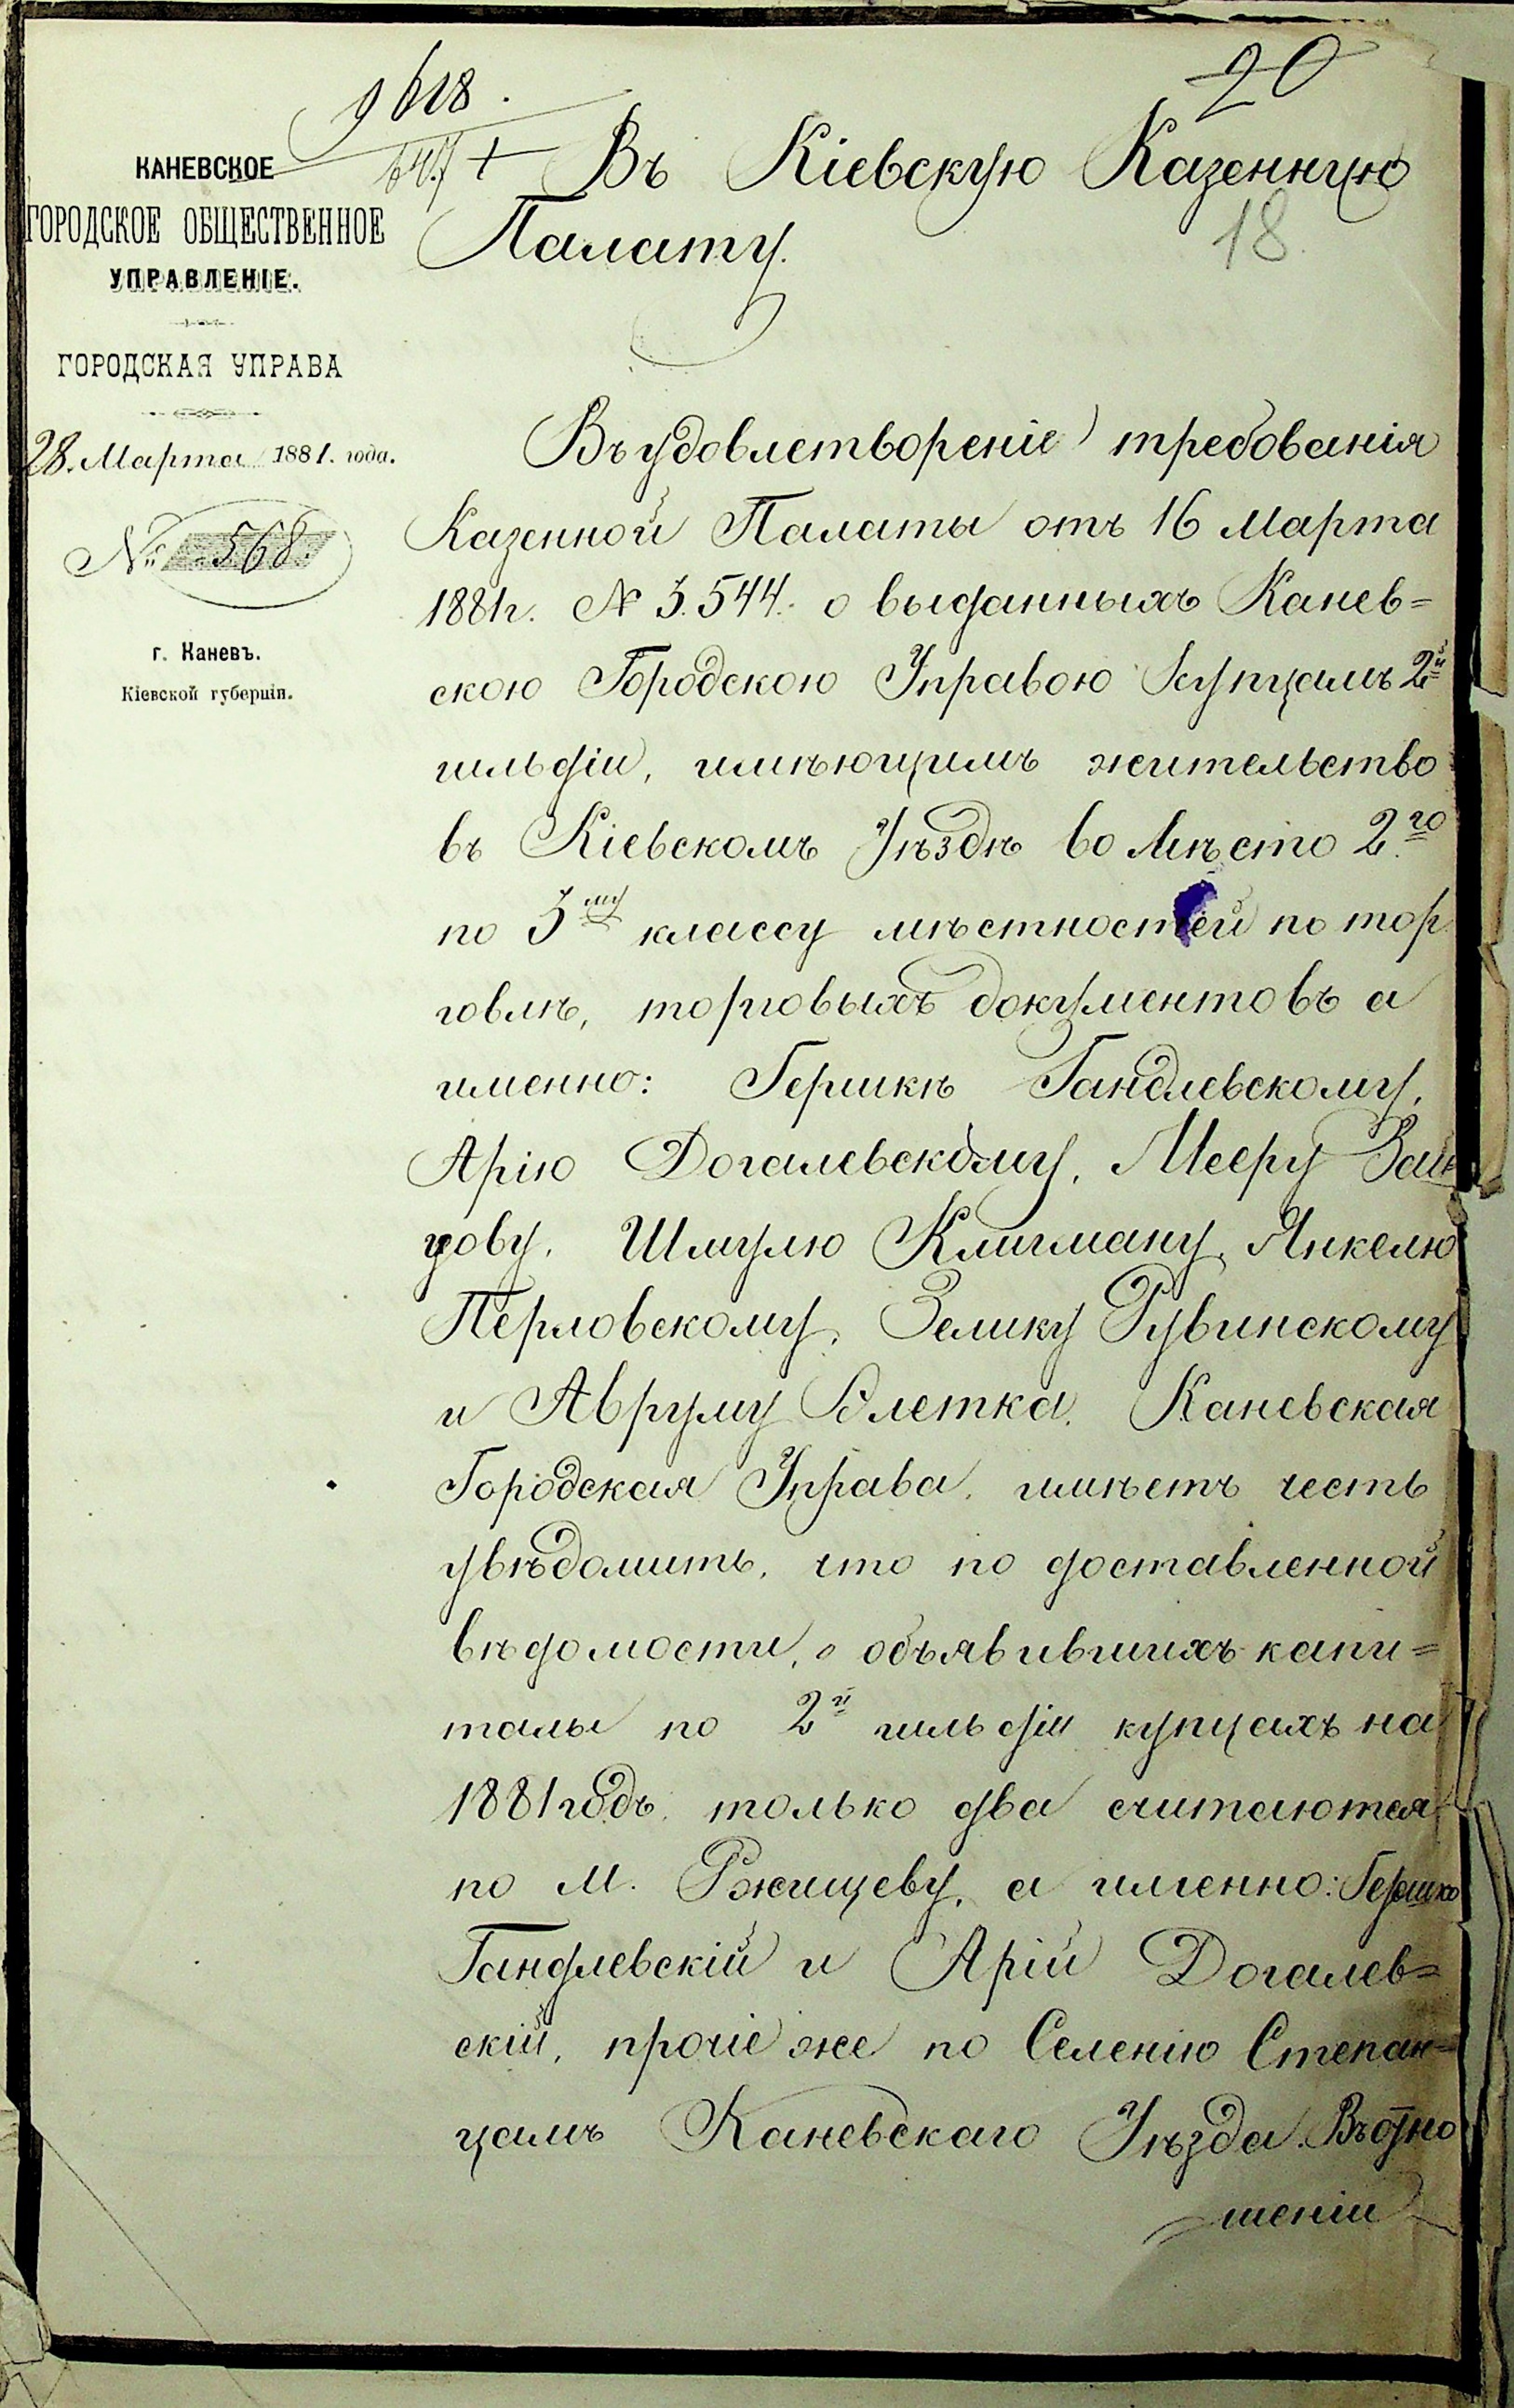 9618.
647 +
20
18.
КАНЕВСКОЕ
ГОРОДСКОЕ ОБЩЕСТВЕННОЕ
УПРАВЛЕНІЕ.
ГОРОДСКАЯ УПРАВА
28. Марта 1881. года.
№ 568.
г. Каневъ.
Кіевской губерніи.
Въ Кіевскую Казенную
Палату.
Въ удовлетвореніе требованія
Казенной Палаты отъ 16 Марта
1881 г. № 3.544. о выданныхъ Канев=
скою Городскою Управою купцамъ 2й
гильдіи, имѣющимъ жительство
въ Кіевскомъ Уѣздѣ вомѣсто 2.го
по 3му классу мѣстностей по тор
говлѣ, торговыхъ документовъ а
именно: Гершкѣ Гандлевскому,
Арію Догалевскому, Мееру Зай
цову, Шмулю Клигману, Янкелю
Перловскому, Зелику Рувинскому
и Авруму Слетка. Каневская
Городская Управа, имѣетъ честь
увѣдомить, что по доставленной
вѣдомости, о объявившихъ капи=
талы по 2й гильдіи купцахъ на
1881 годъ, только два считаются
по м. Ржищеву, а именно: Гершко
Гандлевскій и Арій Догалев=
скій, прочіе же по Селенію Степан=
цамъ Каневскаго Уѣзда. Въ отно
шеніи